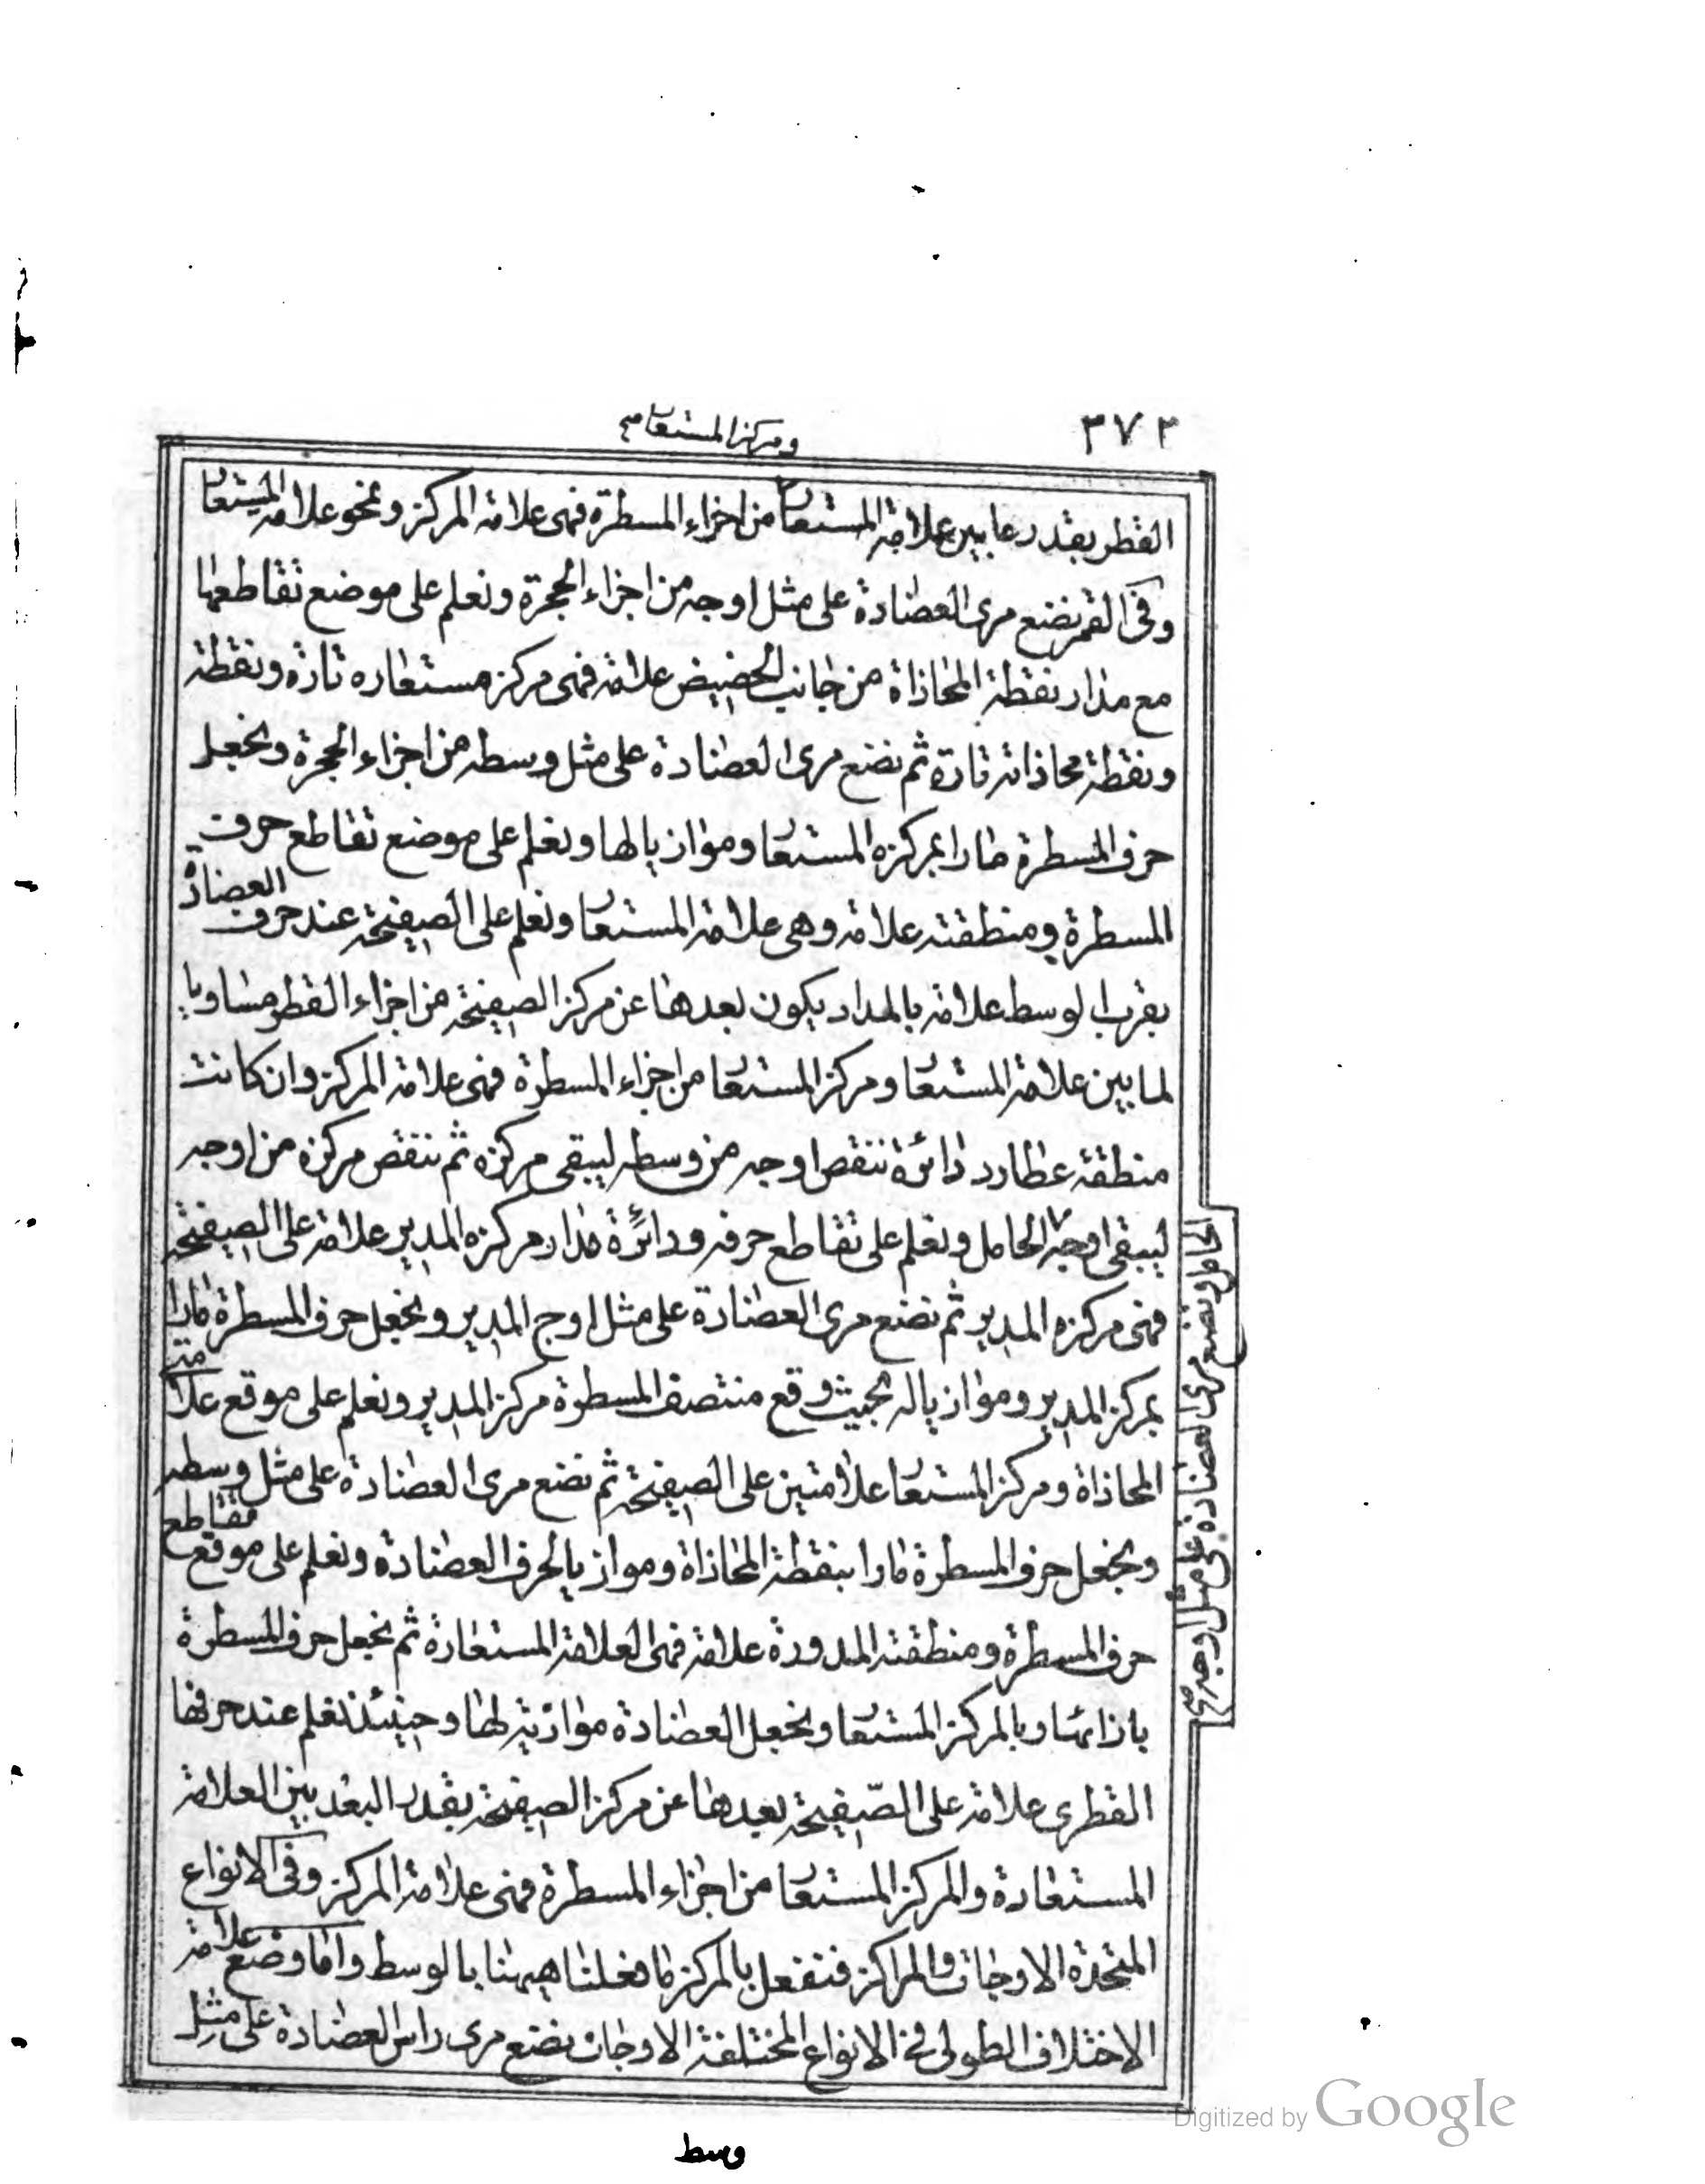 ٣٧٣
ومركز المستعا صح
القطر بقدر ما بين علامة المستعا من اجزاء المسطرة فهى علامة المركز ونحو علامة المستعا
وفى القمر نضع مرى العضادة على مثل اوجه من اجزاء الحجرة ونعلم على موضع تقاطعها
مع مدار نقطة المحاذاة من جانب الحضيض علامة فهى مركز مستعاره تارة ونقطة
ونقطة محاذاته تارة ثم نضع مرى العضادة على مثل وسطه من اجزاء الحجرة ونجعل
حرف المسطرة مارا بمركزه المستعا وموازيا لها ونعلم على موضع تقاطع حرف
المسطرة ومنطقته علامة وهى علامة المستعا ونعلم على الصفيحة عند حرف العضادة
بقرب الوسط علامة بالمداد يكون بعدها عن مركز الصفيحة من اجزاء القطر مساويا
لما بين علامة المستعا ومركز المستعا من اجزاء المسطرة فهى علامة المركز وان كانت
منطقة عطارد دائرة ننقص اوجه من وسطه ليبقى مركزه ثم ننقص مركزه من اوجه
ليبقى اوجه الحامل ونعلم على تقاطع حرفه ودائرة مدار مركزه المدير علامة على الصفيحة
فهى مركزه المدير ثم نضع مرى العضادة على مثل اوج المدير ونجعل حرف المسطرة مارا
بمركز المدير وموازيا له بحيث وقع منتصف المسطرة مركز المدير ونعلم على موقع علامتى
المحاذاة ومركز المستعا علامتين على الصفيحة ثم نضع مرى العضادة على مثل وسطه
ونجعل حرف المسطرة مارا بنقطة المحاذاة وموازيا لحرف العضادة ونعلم على موقع تقاطع
حرف المسطرة ومنطقته المدورة علامة فهى العلامة المستعارة ثم نجعل حرف المسطرة
بازائها وبالمركز المستعا ونجعل العضادة موازية لها وحينئذ نعلم عند حرفها
القطرى علامة على الصفيحة بعدها عن مركز الصفيحة بقدر البعد بين العلامة
المستعارة والمركز المستعا من اجزاء المسطرة فهى علامة المركز وفى الانواع
المتحدة الاوجات والمراكز فنفعل بالمركز ما فعلنا هيهنا بالوسط واما وضع علامة
الاختلاف الطولى فى الانواع المختلفة الاوجات نضع مرى راس العضادة على مثل
الحامل ونضع مرى العضادة على مثل اوجه صح
وسط
Digitized by Google